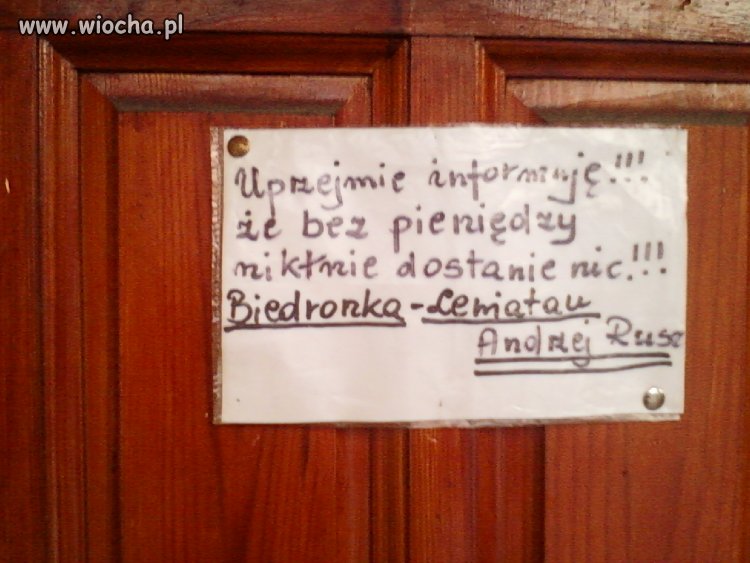 www.wiocha.pl
Uprzejmie informuję!!!
że bez pieniędzy
nikt nie dostanie nic.!!!
Biedronka - Lematau
Andrzej Rusz